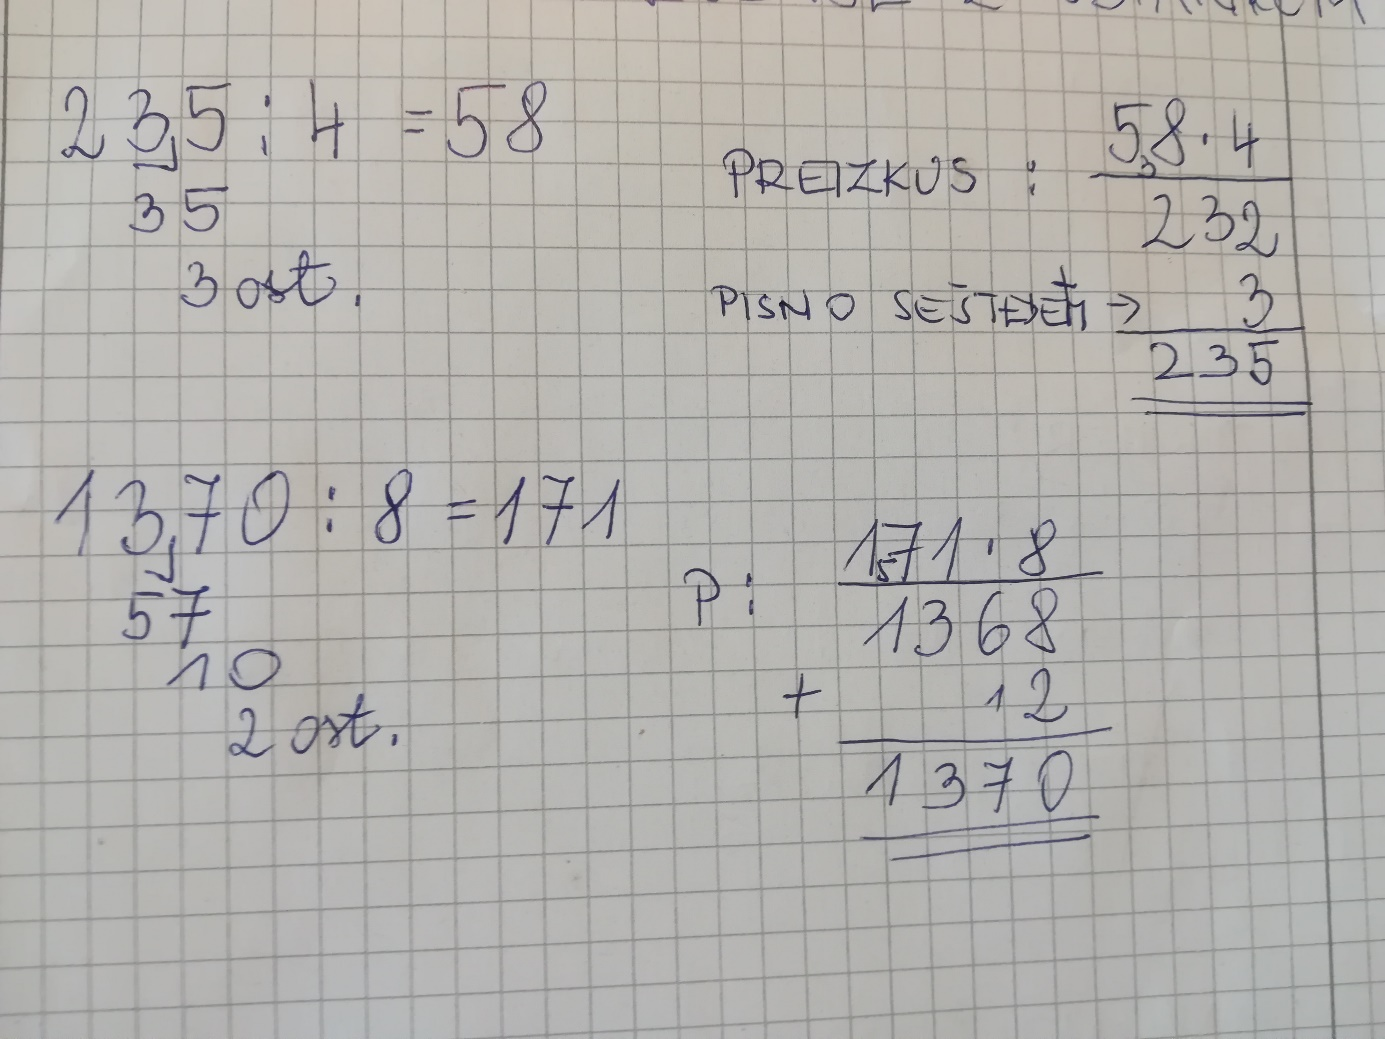 235 : 4 = 58
35
3 ost.
PREIZKUS :
58 · 4
3
232
PISNO SEŠTEJEM → + 3
235
1370 : 8 = 171
57
10
2 ost.
P :
171 · 8
5
1368
+ 12
1370